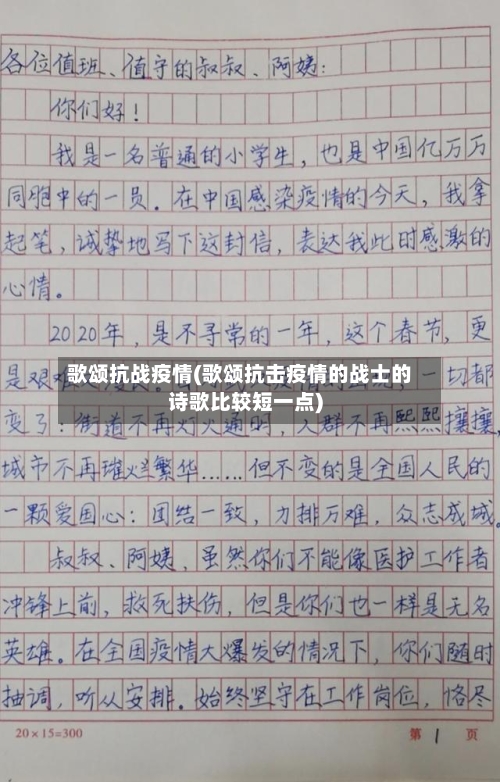 各位值班、值守的叔叔、阿姨：
你们好！
我是一名普通的小学生，也是中国亿万万
同胞中的一员。在中国感染疫情的今天，我拿
起笔，诚挚地写下这封信，表达我此时感激的
心情。
2020年，是不寻常的一年，这个春节，更
是艰
一切都
歌颂抗战疫情(歌颂抗击疫情的战士的
诗歌比较短一点)
变了：街道不再灯火通明，人群不再熙熙攘攘，
城市不再璀灿繁华……但不变的是全国人民的
一颗爱国心：团结一致，力排万难，众志成城。
叔叔、阿姨，虽然你们不能像医护工作者
冲锋上前，救死扶伤，但是你们也一样是无名
英雄。在全国疫情大爆发的情况下，你们随时
抽调，听从安排。始终坚守在工作岗位，恪尽
20×15=300
第 1 页